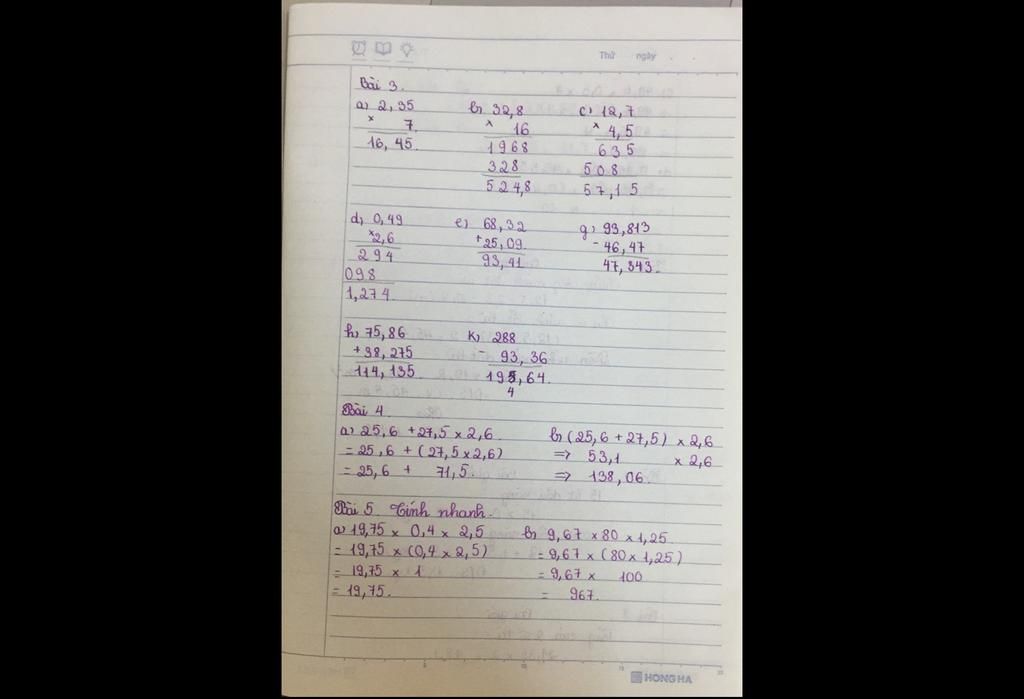 Thứ ngày
Bài 3.
a) 2,35 b) 32,8 c) 12,7
× 7 × 16 × 4,5
16,45 1968 635
328 508
524,8 57,15
d) 0,49 e) 68,32 g) 93,813
×2,6 +25,09 -46,47
294 93,41 47,343
098
1,274
h) 75,86 k) 288
+38,275 - 93,36
114,135 195,64
4
Bài 4
a) 25,6 + 27,5 × 2,6 b) (25,6 + 27,5) × 2,6
= 25,6 + (27,5 × 2,6) => 53,1 × 2,6
= 25,6 + 71,5 => 138,06.
Bài 5. Tính nhanh.
a) 19,75 × 0,4 × 2,5 b) 9,67 × 80 × 1,25
= 19,75 × (0,4 × 2,5) = 9,67 × (80 × 1,25)
= 19,75 × 1 = 9,67 × 100
= 19,75. = 967.
HONG HA